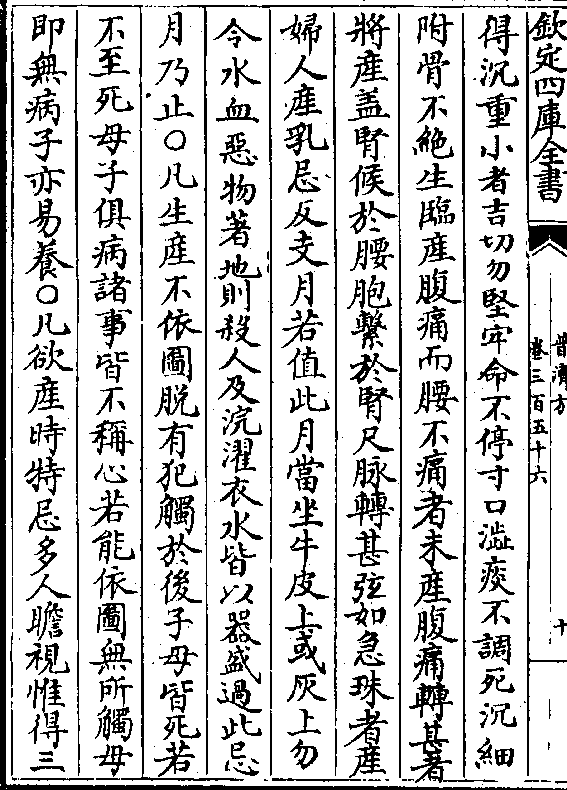 欽定四庫全書
普濟方
卷三百五十六
十
得沉重小者吉切勿堅牢命不停寸口澁痰不調死沉細
附骨不絶生臨産腹痛而腰不痛者未産腹痛轉甚者
將産盖腎候於腰胞繫於腎尺脉轉甚弦如急珠者産
婦人産乳忌反支月若值此月當坐牛皮上或灰上勿
令水血惡物著地則殺人及浣濯衣水皆以器盛過此忌
月乃止〇凡生産不依圖脱有犯觸於後子母皆死若
不至死母子俱病諸事皆不稱心若能依圖無所觸母
即無病子亦易養〇凡欲産時特忌多人瞻視惟得三